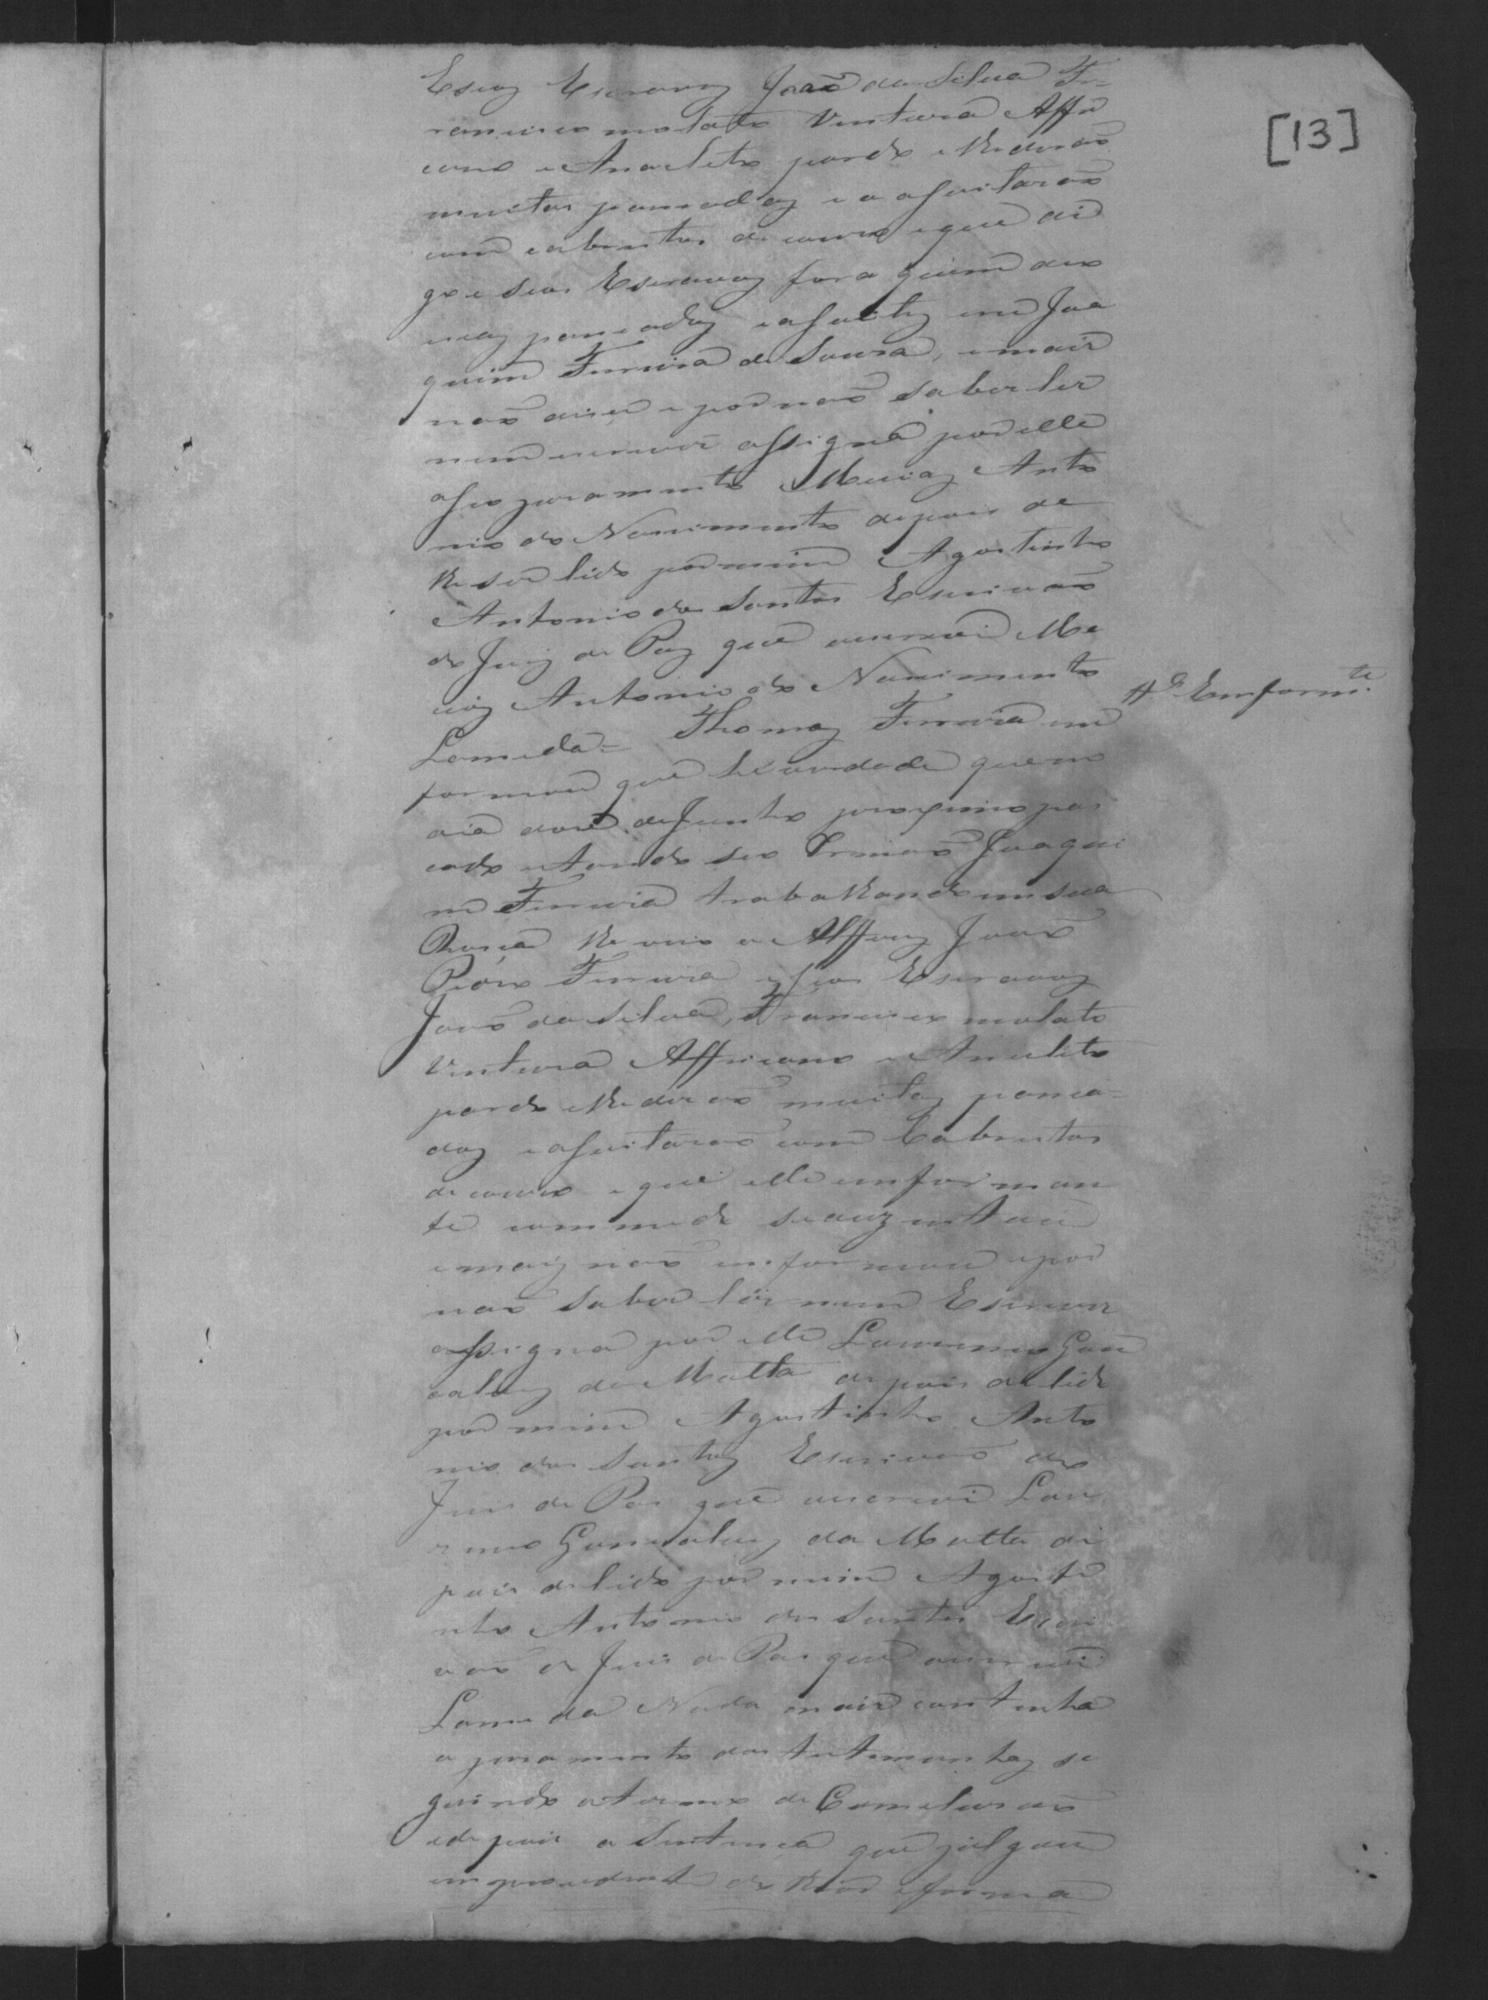 [13]
E seoz Escravoz João da Silva Fr=
rancisco molato Ventura Affri
cano e Anacleto pardo e lhe derão
muitas pancadaz e a asoitarão
com cabrestos de couro e que di
go e seos Escravoz fora quem deo
nas pancadaz e asoitez em Joa
quim Ferreira de Sousa, e mais
não disse e por não saber ler
nem escrever assigna por elle
a seo juramento Meciaz Anto
nio do Nascimento depois de
lhe ser lido por mim Agostinho
Antonio dos Santos Escrivão
do Juiz de Paz que escrevi Me
ciaz Antonio do Nascimento
Lameda = Thomaz Ferreira em
4ª Emform.te
formou que he verdade que no
dia doze de Junho proximo pas
cado estando seo Irmão Joaqui
m Ferreira trabalhando em sua
Rossa lhe veio o Alfferez João
Pedro Ferreira e seos Escravoz
João da Silva, Francisco molato
Ventura Affricano e Anacleto
pardo e lhe derão muitaz panca=
daz e asoitarão com Cabrestos
de couro e que elle emforman
te com medo se auzentara
e maiz não emformou e por
não saber lêr nem Escrever
assigna por elle Lourenço Gon
calvez da Matta depois de lido
por mim Agostinho Anto
nio dos Santoz Escrivão do
Juis de Pas que escrevi Lou
renço Gonsalvez da Matta de
pois de lido por mim Agosti
nho Antonio dos Santos Escri
vão do Juis de Pas que escrevi
Lameda Nada mais continha
o juramento das testemunhaz se
guindo o termo de Concluzão
e depois a Sentença que julgou
improcedente do theor e forma